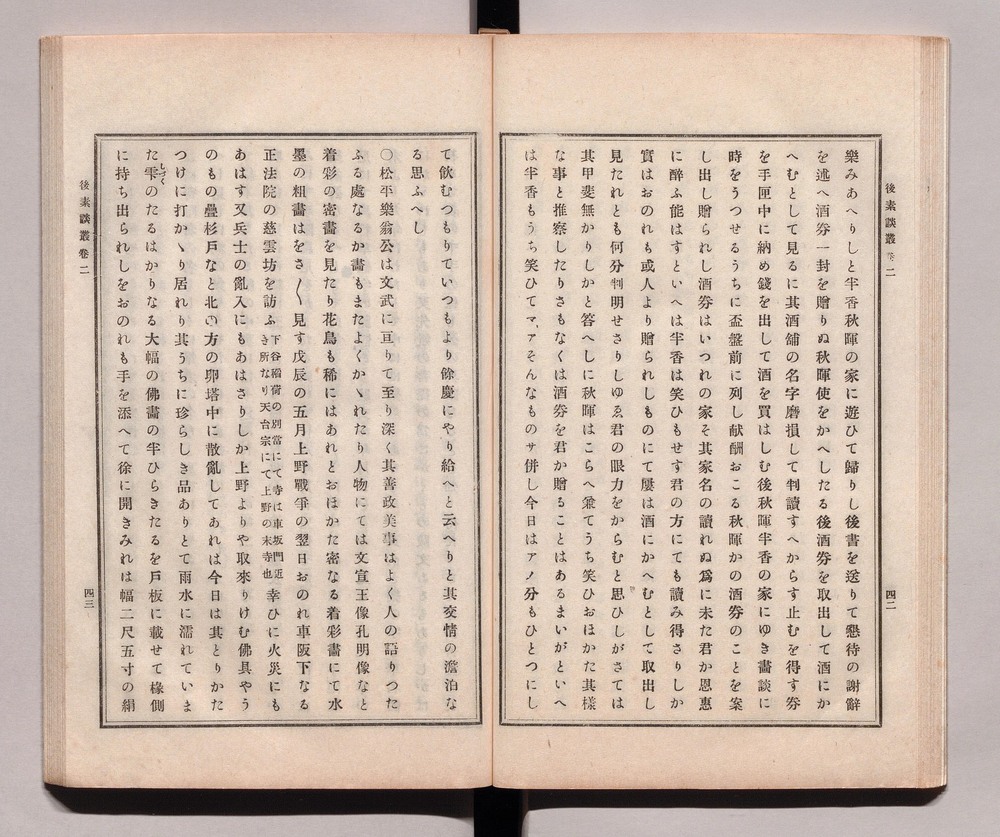 後素談叢卷二
四二
樂みあへりしと半香秋暉の家に遊ひて歸りし後書を送りて懇待の謝辭
を述へ酒券一封を贈りぬ秋暉使をかへしたる後酒券を取出して酒にか
へむとして見るに其酒舖の名字磨損して判讀すへからす止むを得す券
を手匣中に納め錢を出して酒を買はしむ後秋暉半香の家にゆき畵談に
時をうつせるうちに盃盤前に列し献酬おこる秋暉かの酒券のことを案
し出し贈られし酒券はいつれの家そ其家名の讀れぬ爲に未た君か恩惠
に醉ふ能はすといへは半香は笑ひもせす君の方にても讀み得さりしか
實はおのれも或人より贈られしものにて屢は酒にかへむとして取出し
見たれとも何分判明せさりしゆゑ君の眼力をからむと思ひしがさては
其甲斐無かりしかと答へしに秋暉はこらへ兼てうち笑ひおほかた其樣
な事と推察したりさもなくは酒券を君か贈ることはあるまいがといへ
は半香もうち笑ひてマアそんなものサ併し今日はアノ分もひとつにし
て飲むつもりていつもより餘慶にやり給へと云へりと其交情の澹泊な
る思ふへし
〇松平樂翁公は文武に亘りて至り深く其善政美事はよく人の語りつた
ふる處なるか畵もまたよくかゝれたり人物にては文宣王像孔明像なと
着彩の密畵を見たり花鳥も稀にはあれとおほかた密なる着彩畵にて水
墨の粗畵はをさ〱見す戊辰の五月上野戰爭の翌日おのれ車阪下なる
正法院の慈雲坊を訪ふ下谷稲荷の別當にて寺は車坂門近き所なり天台宗にて上野の末寺也幸ひに火災にも
あはす又兵士の亂入にもあはさりしか上野よりや取來りけむ佛具やう
のもの疊杉戸なと北の方の卵塔中に散亂してあれは今日は其とりかた
つけに打かゝり居れり其うちに珍らしき品ありとて雨水に濡れていま
た雫しづくのたるはかりなる大幅の佛畵の半ひらきたるを戸板に載せて椽側
に持ち出られしをおのれも手を添へて徐に開きみれは幅二尺五寸の絹
後素談叢卷二
四三